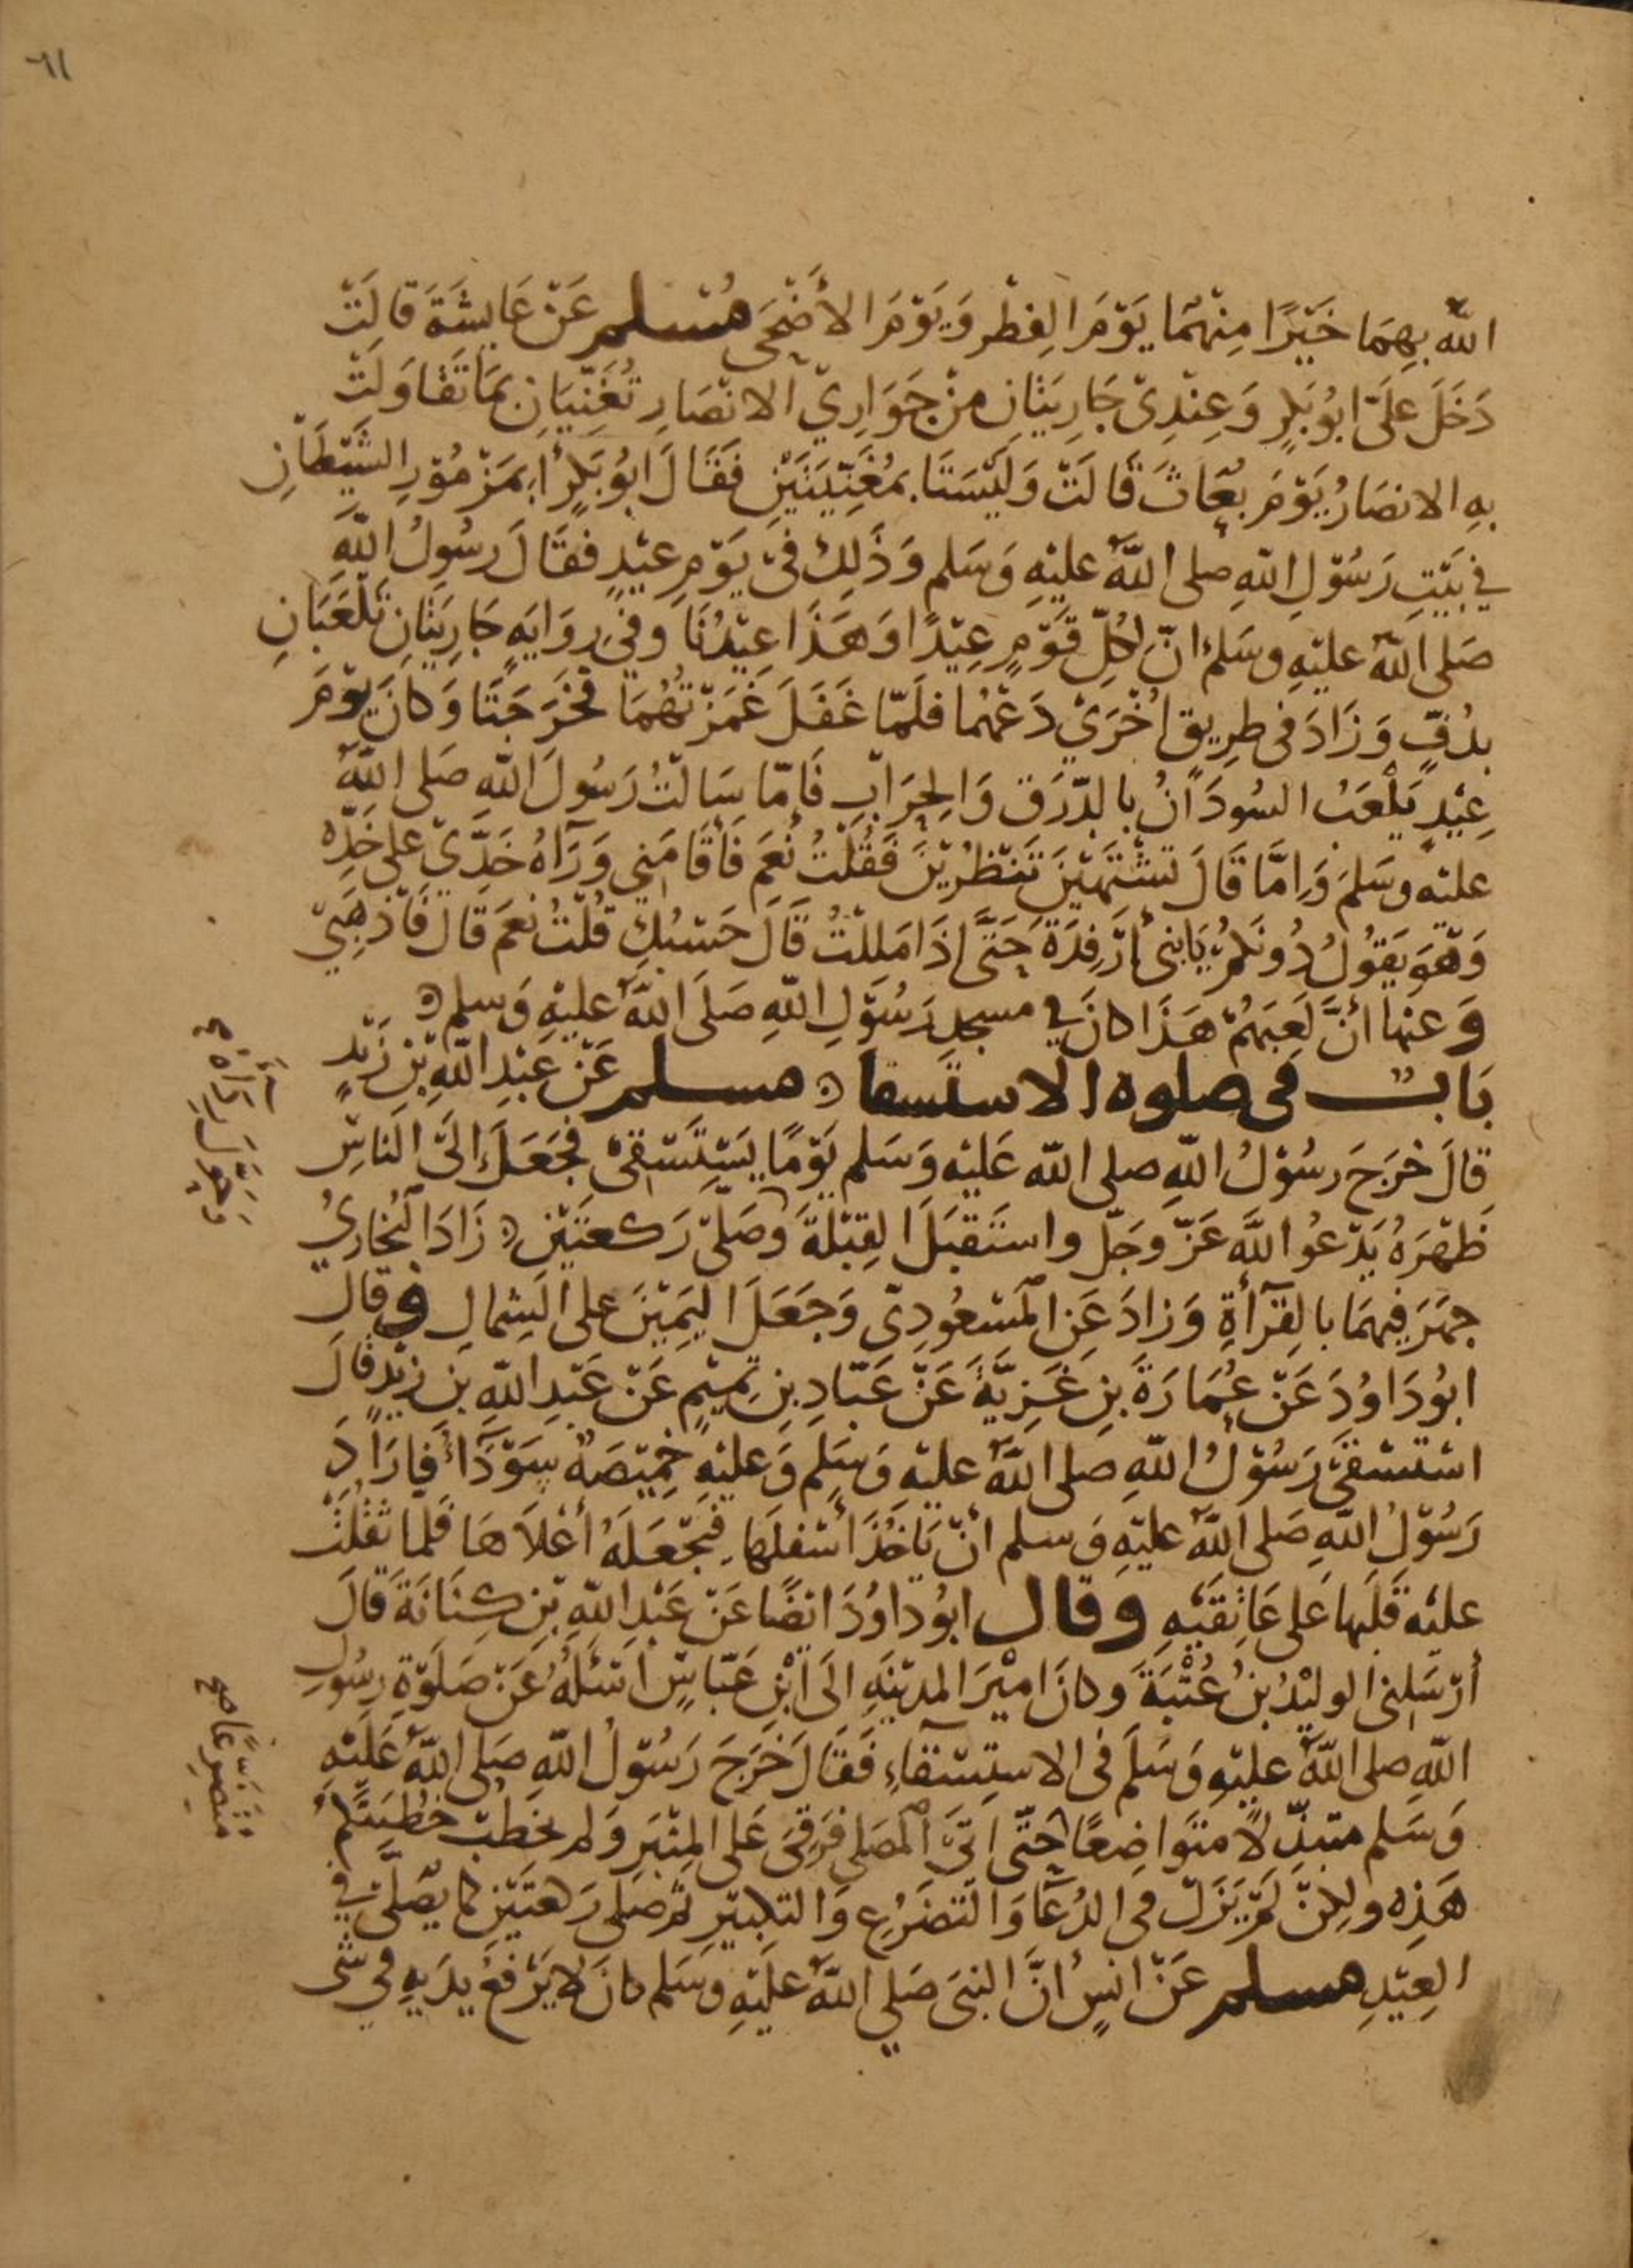 ٦١
الله بِهِمَا خَيْرًا مِنْهُمَا يَوْمَ الفِطْرِ وَيَوْمَ الأَضْحَى مُسْلم عَنْ عَايِشَةَ قَالَتْ
دَخَلَ عَلَيَّ ابُو بَكرٍ وَعِنْدِيْ جَارِيَتَانِ مِنْ جَوَارِيْ الانْصَارِ تُغَنِّيَانِ بِمَا تَقَاوَلَتْ
بِهِ الانصَارُ يَوْمَ بُعَاثَ قَالَتْ وَلَيْسَتَا بِمُغَنِّيَتَيْنِ فَقَالَ ابُو بَكرٍ أبِمَزْمُوْرِ الشَّيْطَانِ
فِي بَيْتِ رَسُوْلِ اللهِ صلى اللهُ عليْهِ وَسَلم وَذَلِكَ فيْ يَوْمِ عيْدٍ فقَالَ رَسُولُ اللهِ
صَلى اللهُ عليْهِ وسَلم انّ لِكُلِّ قَوْمٍ عِيْدًا وَهَذَا عِيْدُنَا وَفي رِوَايَهٍ جَارِيَتَانِ تَلْعَبَانِ
بِدُفٍّ وَزَادَ فى طرِيقٍ اخْرَيْ دَعْهُمَا فلَمّا غَفَلَ غَمَزْتُهُمَا فَخَرَجَتَا وَكانَ يَوْمَ
عِيْدٍ يَلْعَبُ السُودَانُ بالدّرَقِ وَالحِرَابِ فَامّا سَالتُ رَسُولَ اللهِ صَلى اللهُ
عليْهِ وسَلمَ وَامَّا قَالَ تَشْتَهِيْنَ تَنْظُرِيْنَ فَقُلْتُ نَعَم فَأقَامَنِي وَرَآهُ خَدِّيْ عَلى خَدِّهِ
وَهْوَ يَقُوْلُ دُونَكُمْ يَابَنى أرْفِدَةَ حَتَّى إذَا مَلِلْتُ قَالَ حَسْبُكِ قُلْتُ نَعَمَ قَالَ فَاذْهَبِيْ
وَعنهَا أنَّ لَعِبَهُمْ هَذَا كانَ فِي مسجدِ رَسُوْلِ اللهِ صَلَى اللهُ عليْهِ وَسلم
بَابُ في صلوه الاستسقا مسلم عَنْ عَبْدِ اللهِ بْنِ زَيْدٍ
وَحَوَّلَ رِدَاءَهُ صح
قَالَ خَرَجَ رسُوْلُ اللهِ صلى الله عَليْهِ وَسَلم يَوْمًا يَسْتَسْقيْ فَجَعَلَ الَى الَناسِ
ظَهْرَهُ يَدْعُو اللَّهَ عَزّ وجَلّ واستَقبَلَ القِبْلَةَ وَصَلّى رَكعتَيْنِ زَادَ البُخَاريُّ
جهَرَ فِيهِمَا بالقِرَآأةِ وَزادَ عَنِ المَسْعُودِيْ وَجَعَلَ اليَمِيْنَ على الشِمالِ وقالَ
ابُودَاوُدَ عَنْ عُمَارَةَ بنِ غَزِيَّةَ عَنْ عَبّادِ بنِ تمِيْمٍ عَنْ عَبْدِ اللهِ بن زَيْدٍ قَالَ
اسْتَسْقَى رَسُوْلُ اللهِ صلى اللهُ عليْهِ وَسَلم وَعليْهِ خَمِيْصَةٌ سَوْدَآءُ فَارَادَ
رَسُوْلُ اللهِ صَلى اللهُ عليْهِ وَسلم انْ يَاخُذَ أسْفلَهَا فيَجْعَلَهُ أعْلاَهَا فَلَما ثَقُلَتْ
عليْهِ قَلَبَها عَلى عَاتِقَيْهِ وقال ابُو داوُدَ ايْضًا عَنْ عَبْدِ اللهِ بْنِ كِنَانَةَ قَالَ
أرْسَلنِى الوليْدُ بنُ عُتْبَةَ وكانَ امِيْرَ المديْنَهِ الَى ابْنِ عَبّاسٍ اسْئَلُهُ عَنْ صَلَوةِ رسُولِ
اللهِ صلى اللهُ عليْهِ وَسَلمَ فى الاسْتِسْقَاءِ فَقَالَ خَرَجَ رَسُوْلُ اللهِ صَلى اللهُ عَليْهِ
وَسَلم متبذّلاً متَوَاضِعًا حَتّى اتَى المصَلى فَرَقِىَ عَلى المِنْبَرِ وَلم يخطُبْ خُطْبَتَكُمْ
مُتَضَرِّعًا صح
هَذِه ولكِنْ لَمْ يَزَلْ في الدُعَآ وَالتَضَرُعِ وَالتكبيْرِ ثم صَلى رَكعَتَيْنِ كما يُصَلَّى في
العِيْدِ مسلم عَنْ انسٍ انَّ النبىَ صَلي اللهُ عليْهِ وسَلم كانَ لاَ يَرْفعُ يدَيهِ في شَى